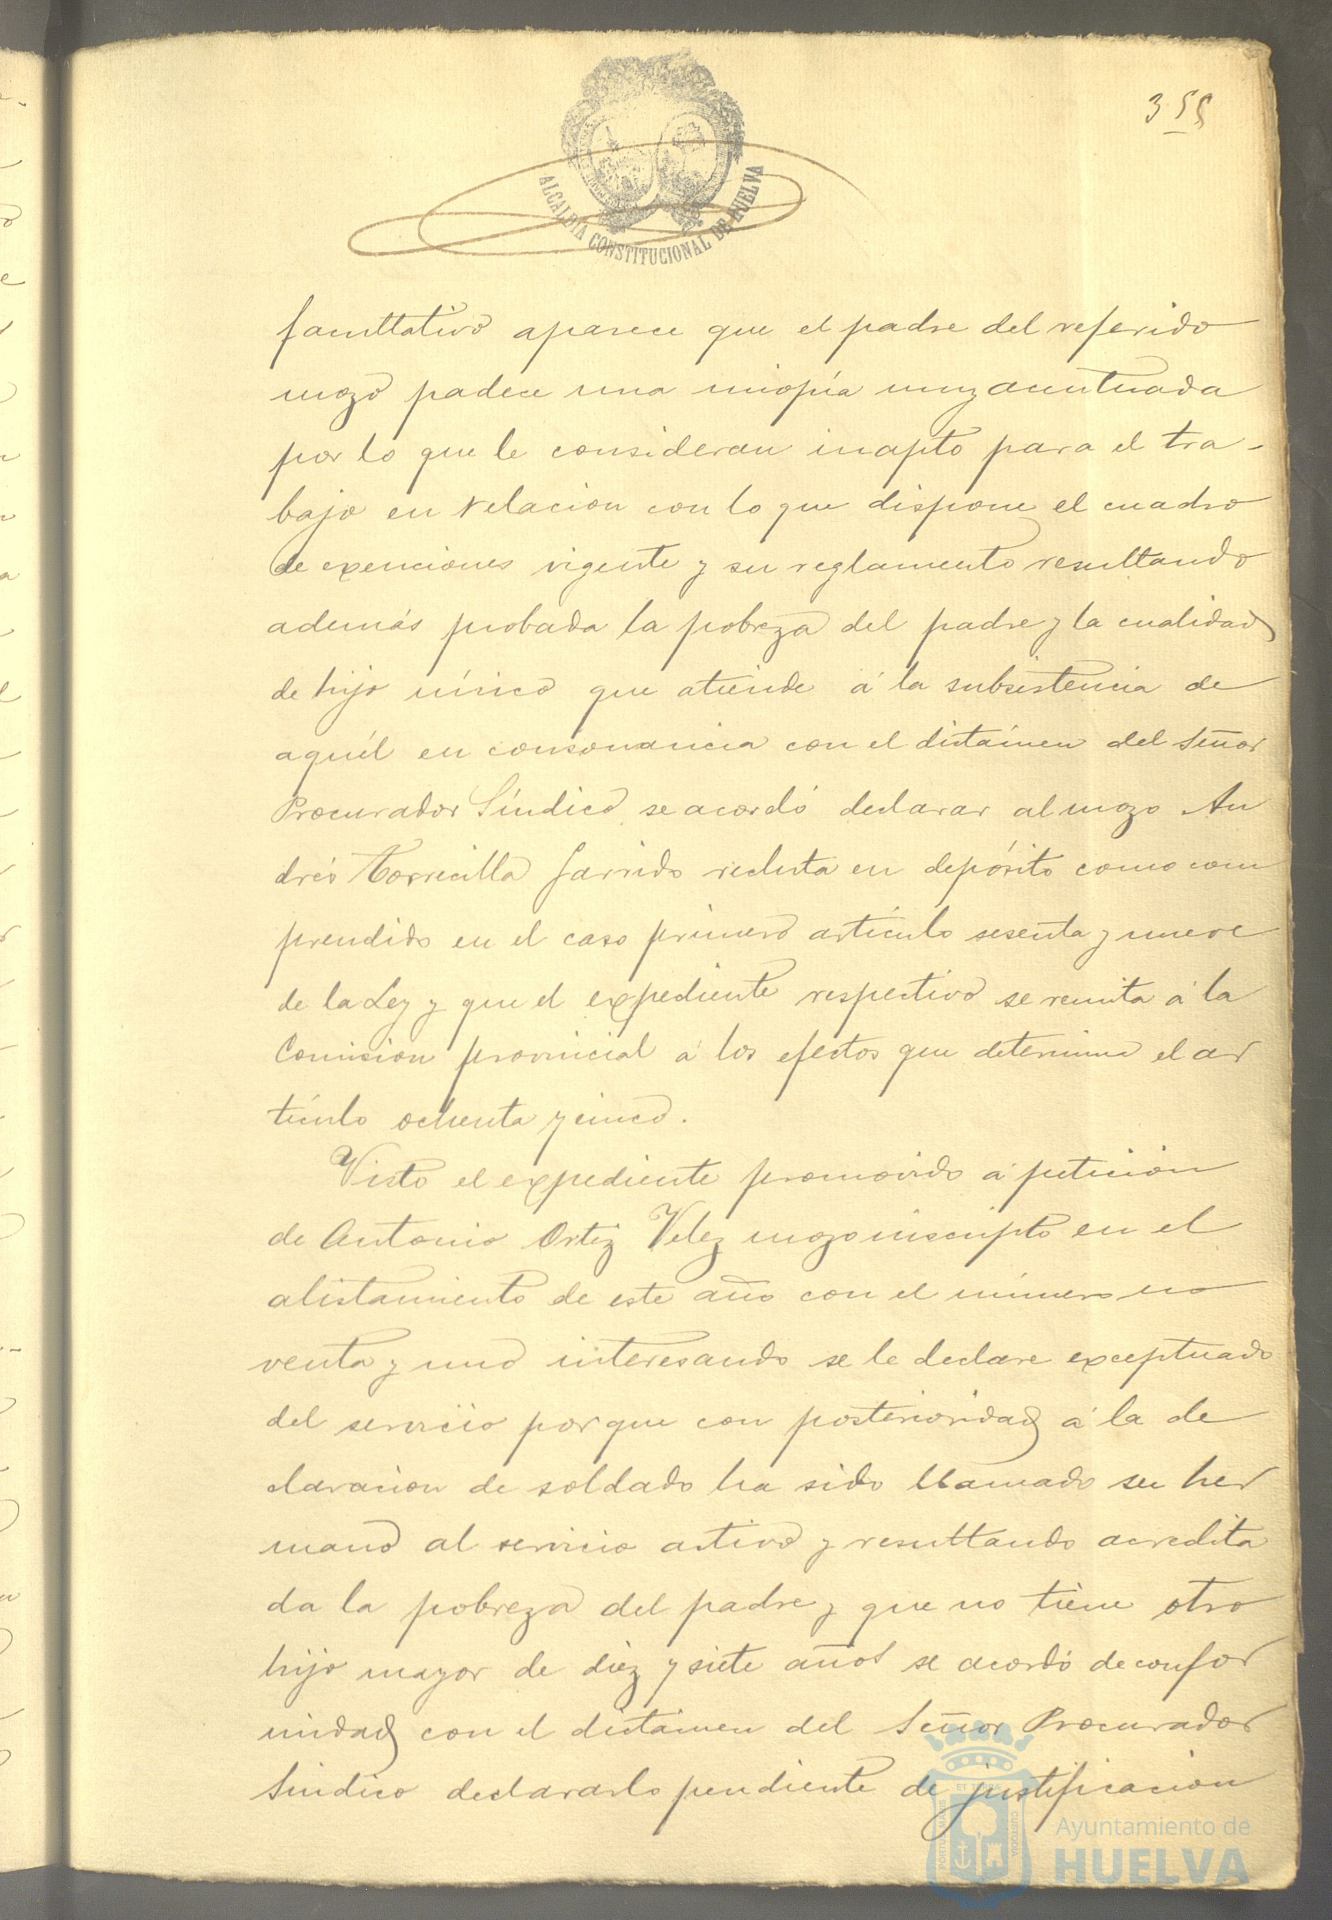 355
ALCALDÍA CONSTITUCIONAL DE HUELVA
facultativo aparece que el padre del referido
mozo padece una miopía muy acentuada
por lo que le consideran inapto para el tra-
bajo en relacion con lo que dispone el cuadro
de exenciones vigente y su reglamento resultando
además probada la pobreza del padre y la cualidad
de hijo único que atiende á la subsistencia de
aquél en consonancia con el dictámen del Señor
Procurador Síndico se acordó declarar al mozo An
drés Torrecilla Garrido recluta en depósito como com
prendido en el caso primero artículo sesenta y nueve
de la Ley y que el expediente respectivo se remita á la
Comision provincial a los efectos que determina el ar
tículo ochenta y cinco.
Visto el expediente promovido á peticion
de Antonio Ortiz Velez mozo inscripto en el
alistamiento de este año con el número no
venta y uno interesando se le declare exceptuado
del servicio porque con posterioridad á la de
claracion de soldado ha sido llamado su her
mano al servicio activo y resultando acredita
da la pobreza del padre y que no tiene otro
hijo mayor de diez y siete años se acordó de confor
midad con el dictámen del Señor Procurador
Síndico declararlo pendiente de justificacion
Ayuntamiento de
HUELVA